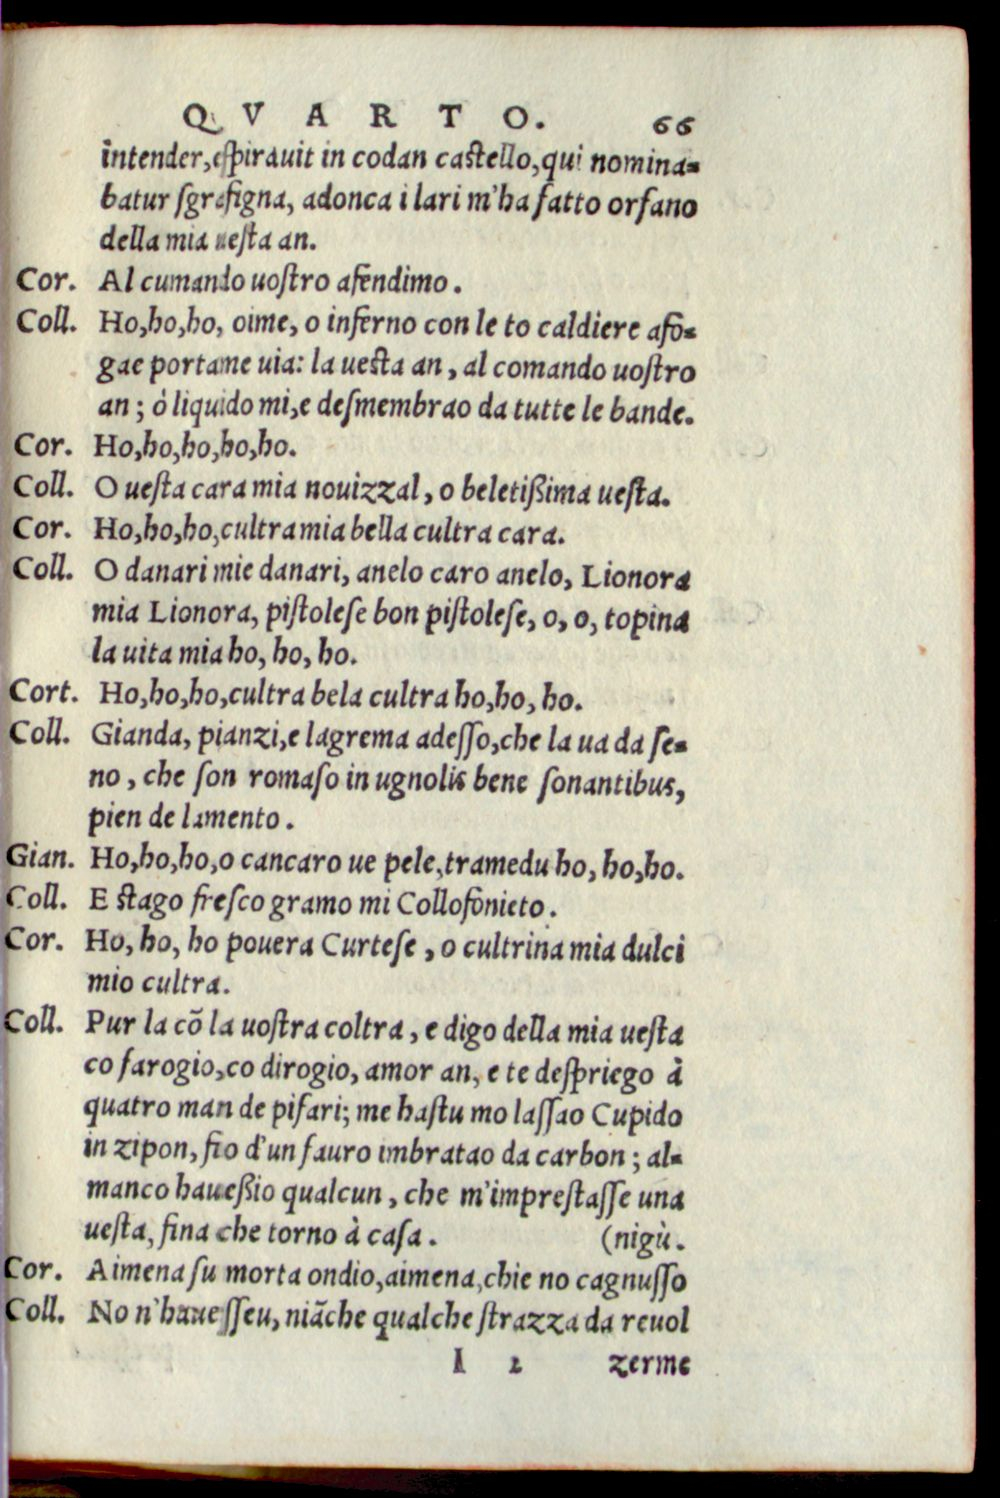 QVARTO. 66
intender, espirauit in codan castello, qui nomina-
batur sgrafigna, adonca i lari m'ha fatto orfano
della mia uesta an.
Cor. Al cumando uostro afendimo.
Coll. Ho, ho, ho, oime, o inferno con le to caldiere afo-
gae portame uia: la uesta an, al comando uostro
an; ò liquido mi, e desmembrao da tutte le bande.
Cor. Ho, ho, ho, ho, ho.
Coll. O uesta cara mia nouizzal, o beletißima uesta.
Cor. Ho, ho, ho, cultra mia bella cultra cara.
Coll. O danari mie danari, anelo caro anelo, Lionora
mia Lionora, pistolese bon pistolese, o, o, topina
la uita mia ho, ho, ho.
Cort. Ho, ho, ho, cultra bela cultra ho, ho, ho.
Coll. Gianda, pianzi, e lagrema adesso, che la ua da se-
no, che son romaso in ugnolis bene sonantibus,
pien de lamento.
Gian. Ho, ho, ho, o cancaro ue pele, tramedu ho, ho, ho.
Coll. E stago fresco gramo mi Collofonieto.
Cor. Ho, ho, ho pouera Curtese, o cultrina mia dulci
mio cultra.
Coll. Pur la cõ la uostra coltra, e digo della mia uesta
co farogio, co dirogio, amor an, e te despriego à
quatro man de pifari; me hastu mo lassao Cupido
in zipon, fio d'un fauro imbratao da carbon; al-
manco haueßio qualcun, che m'imprestasse una
uesta, fina che torno à casa. (nigù.
Cor. Aimena su morta ondio, aimena, chie no cagnusso
Coll. No n'hauesseu, niãche qualche strazza da reuol
I 2 zerme